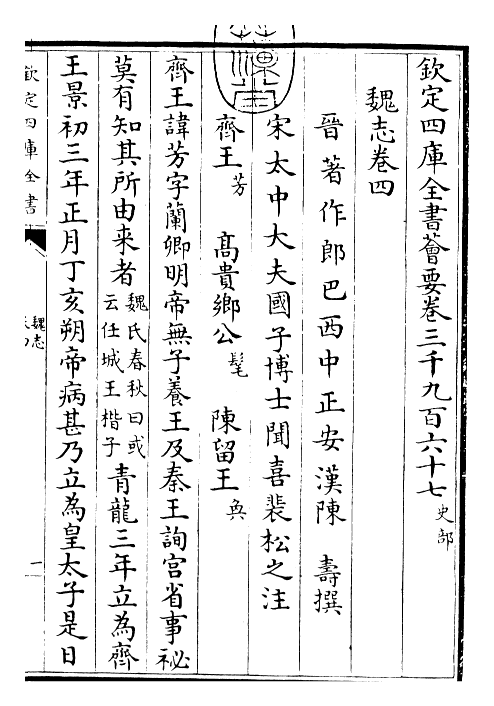 欽定四庫全書薈要卷三千九百六十七史部
魏志卷四
晉著作郎巴西中正安漢陳　壽撰
宋太中大夫國子博士聞喜裴松之注
齊王芳　高貴鄉公髦　陳留王奐
齊王諱芳字蘭卿明帝無子養王及秦王詢宮省事祕
莫有知其所由来者魏氏春秋曰或云任城王楷子青龍三年立為齊
王景初三年正月丁亥朔帝病甚乃立為皇太子是日
欽定四庫全書
魏志
一